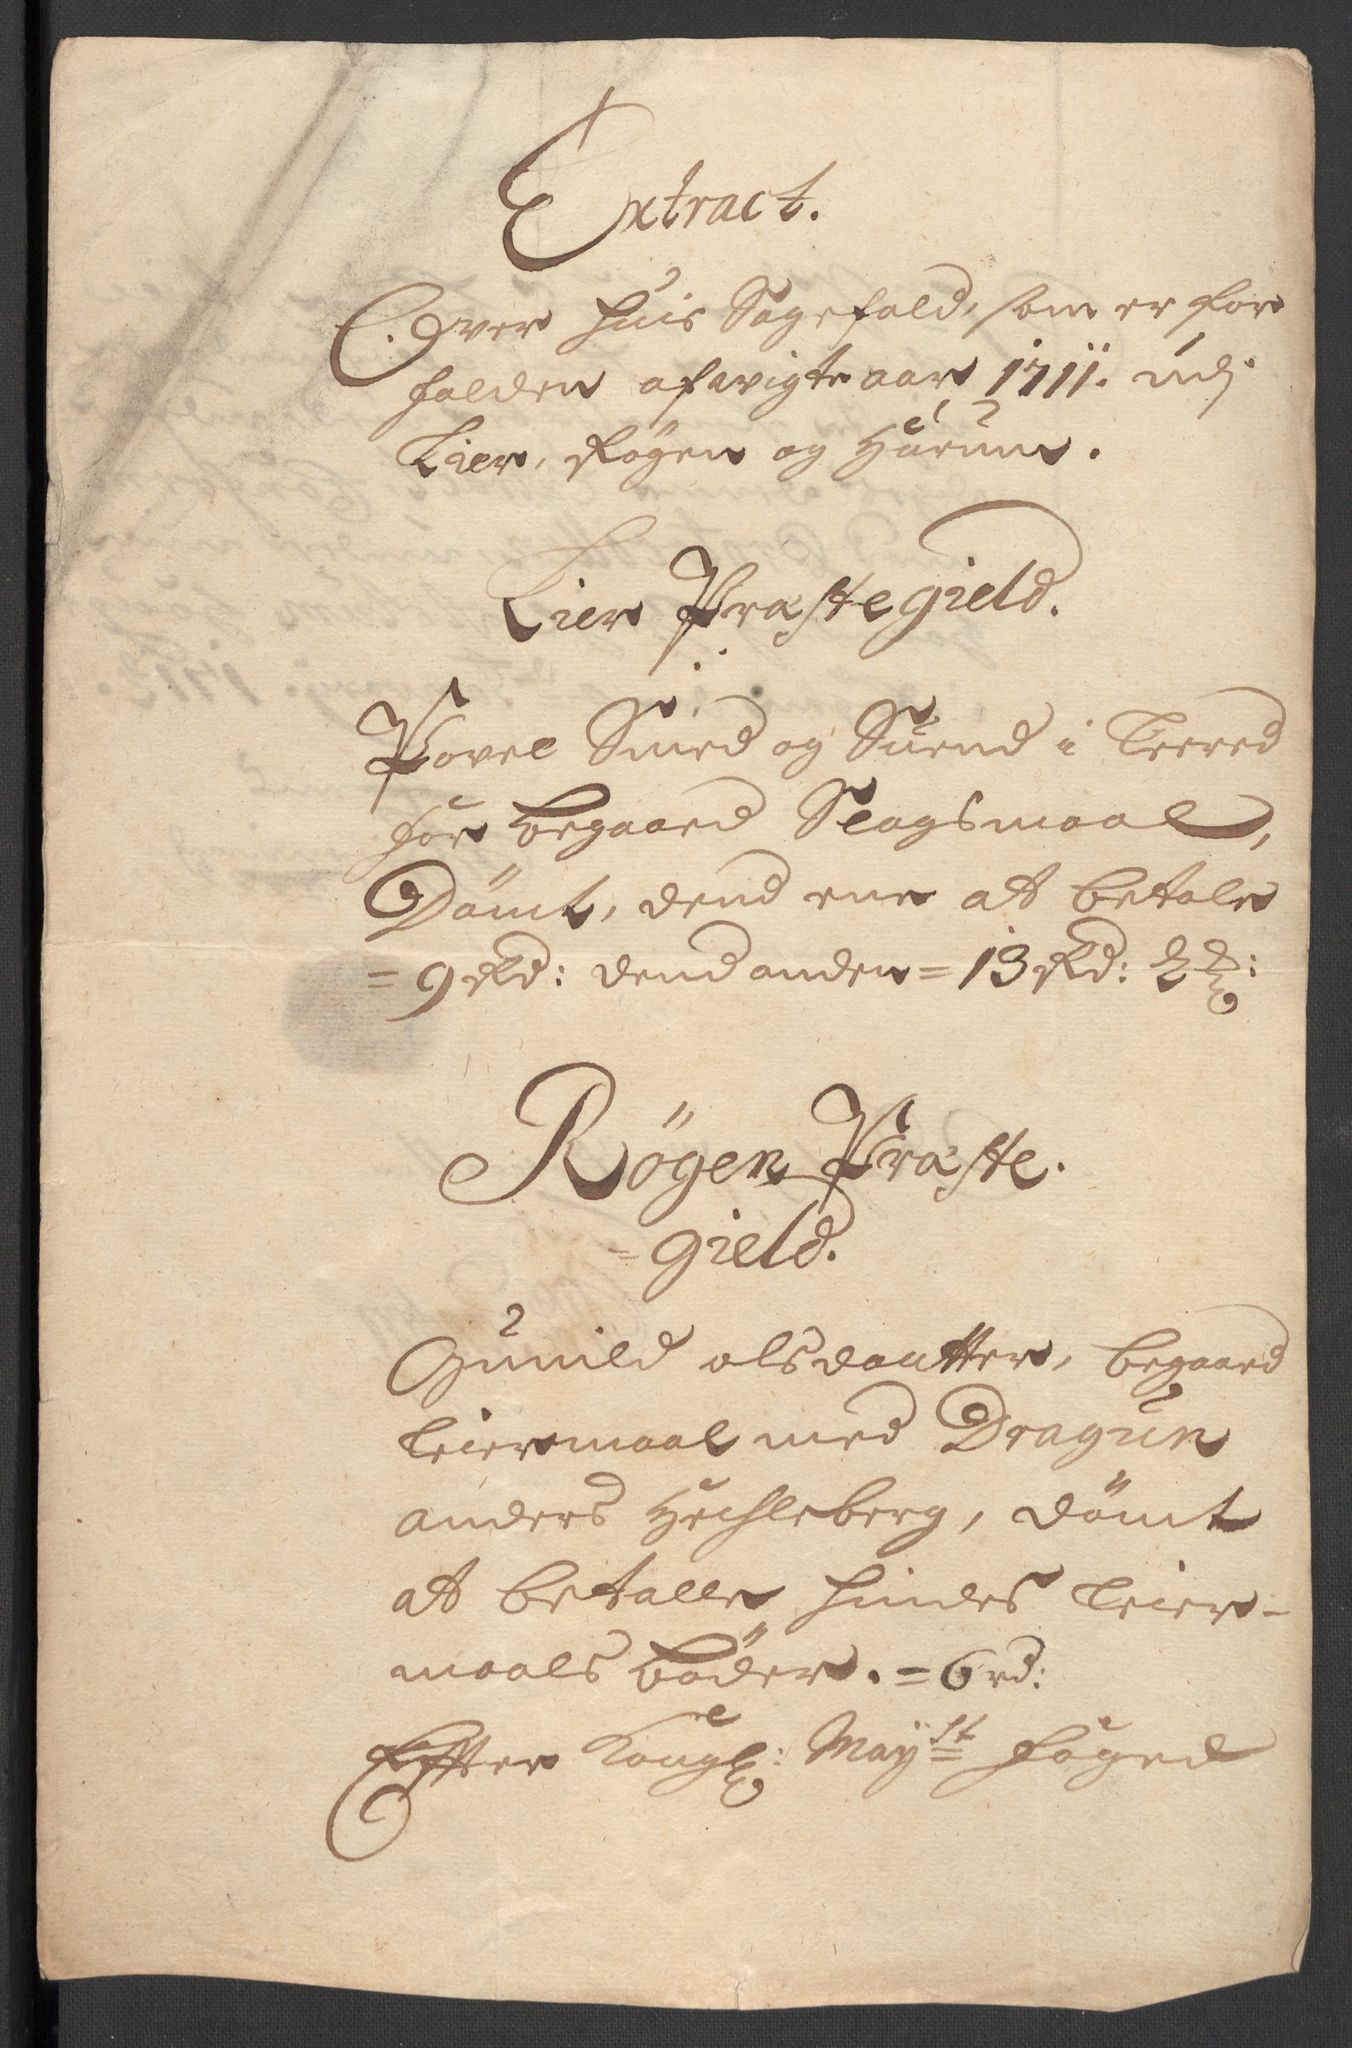 Extract.
Over huis Sagefald, som er for
falden afwigte aar 1711. udj
Lier, Røgen og Hurum.
Lier Præstegield.
Povel Smed og Suend i Leered
for begaaed Slagsmaal,
Dömt, dend ene at betale
= 9 Rd: dend anden = 13 Rd:
Rögen Præste.
= gield.
Gunild olsdaatter, begaaed
leiermaal med Dragun
anders Hechleberg, dömt
at betalle hindes leier-
maals böder. = 6 rd:
Effter Kongl: Mayst foged